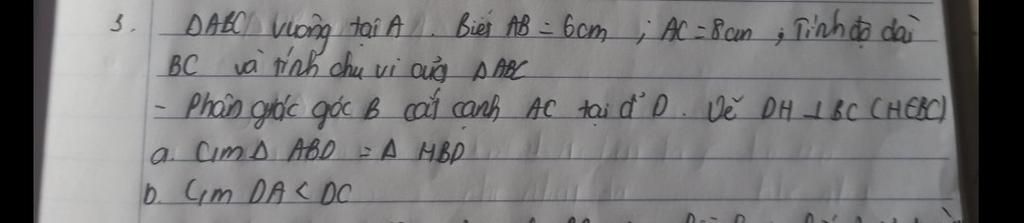 3. ΔABC vuông tại A. Biết AB = 6cm ; AC = 8cm ; Tính độ dài
BC và tính chu vi của ΔABC
- Phân giác góc B cắt cạnh AC tại đ' D. Vẽ DH ⊥ BC (H∈BC)
a. Cm Δ ABD = Δ HBD
b. Cm DA < DC